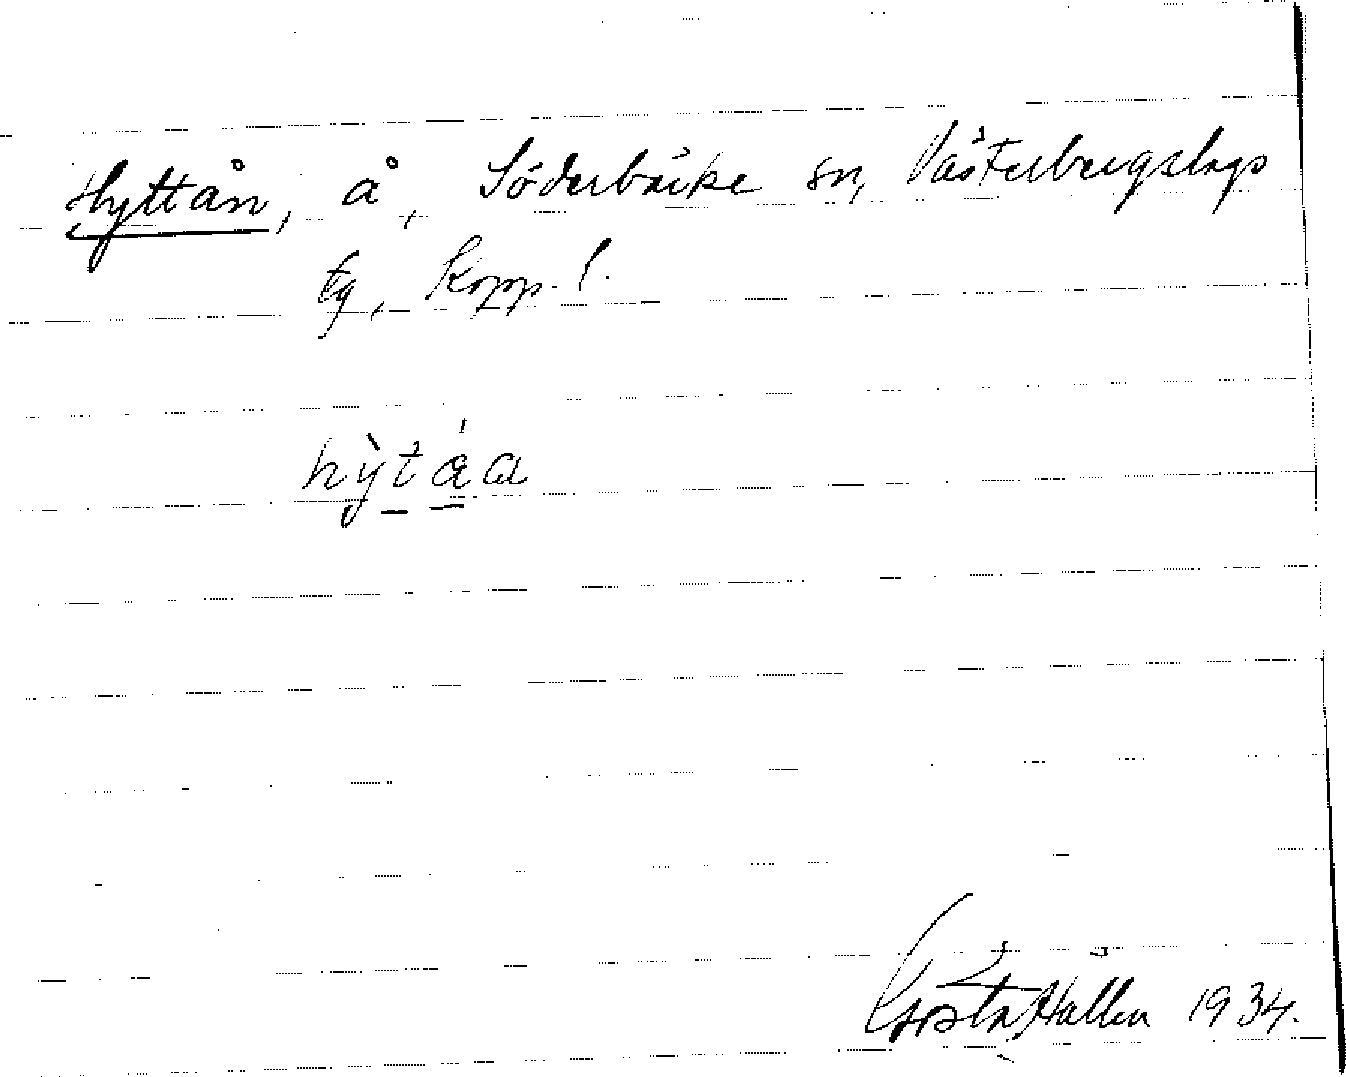 Hyttån, å, Söderbärke sn, Västerbergslags
tg, Kopp. l.
hỳtáa
Gösta Hallén 1934.